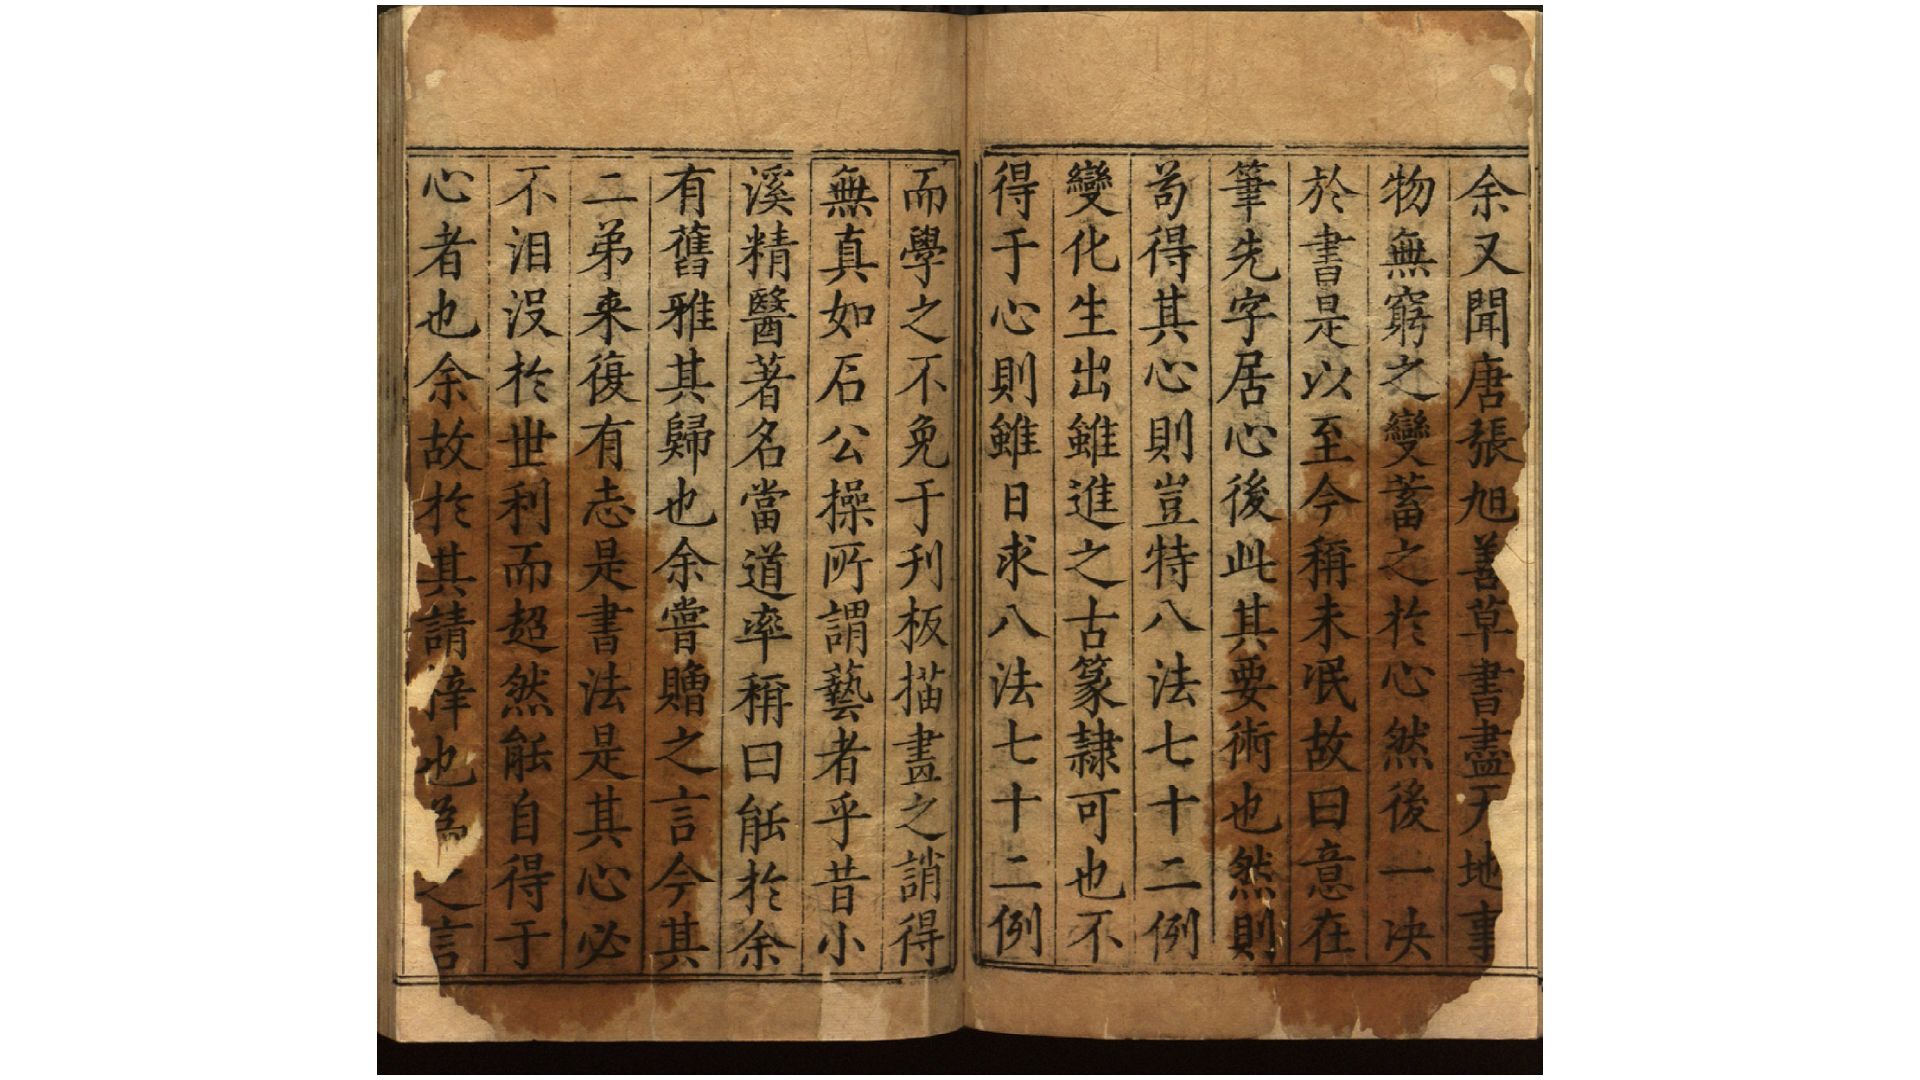 余又聞唐張旭善草書盡天地事
物無窮之變蓄之於心然後一决
於書是以至今稱未泯故曰意在
筆先字居心後此其要術也然則
苟得其心則豈特八法七十二例
變化生出雖進之古篆隷可也不
得于心則雖日求八法七十二例
而學之不免于刋板描畫之誚得
無真如石公操所謂藝者乎昔小
溪精醫著名當道率稱曰能於余
有舊雅其歸也余嘗贈之言今其
二弟来復有志是書法是其心必
不泪没於世利而超然能自得于
心者也余故於其請梓也為之言